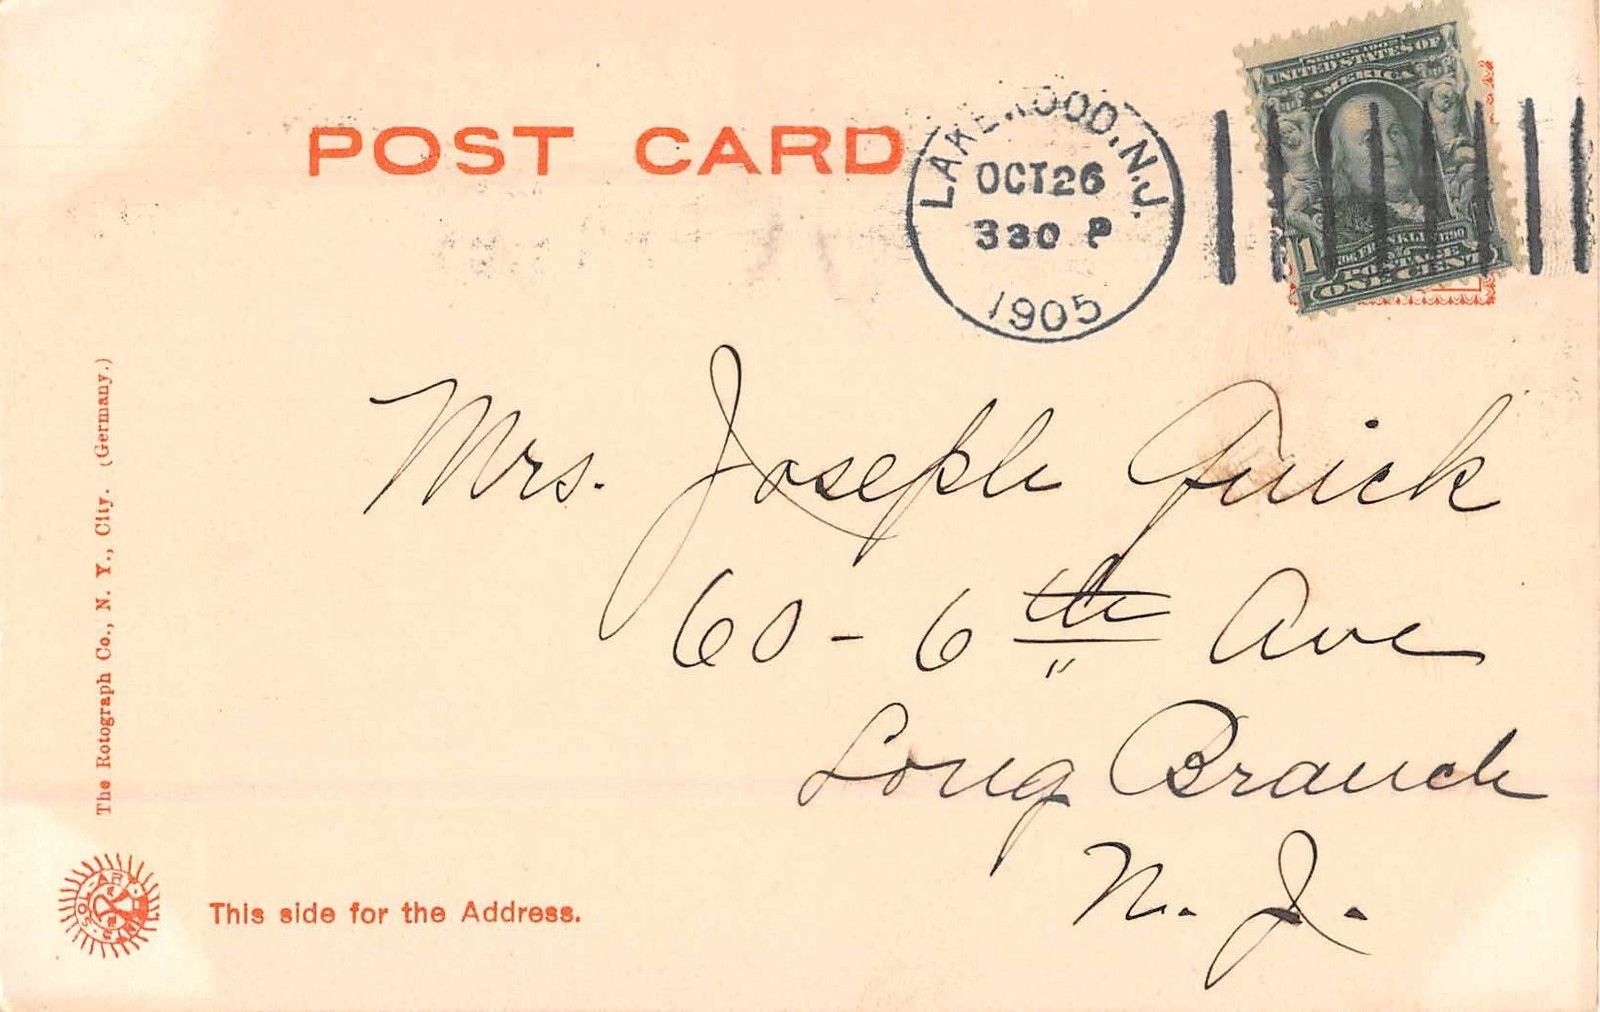 POST CARD
LAKEWOOD, N.J.
OCT 26
330 P
1905
SERIES 1902
UNITED STATES OF
AMERICA
1706 FRANKLIN 1790
1
POSTAGE
ONE CENT
Mrs. Joseph Quick
60 - 6th Ave
Long Branch
N. J.
The Rotograph Co., N. Y., City. (Germany.)
SOL ART
This side for the Address.